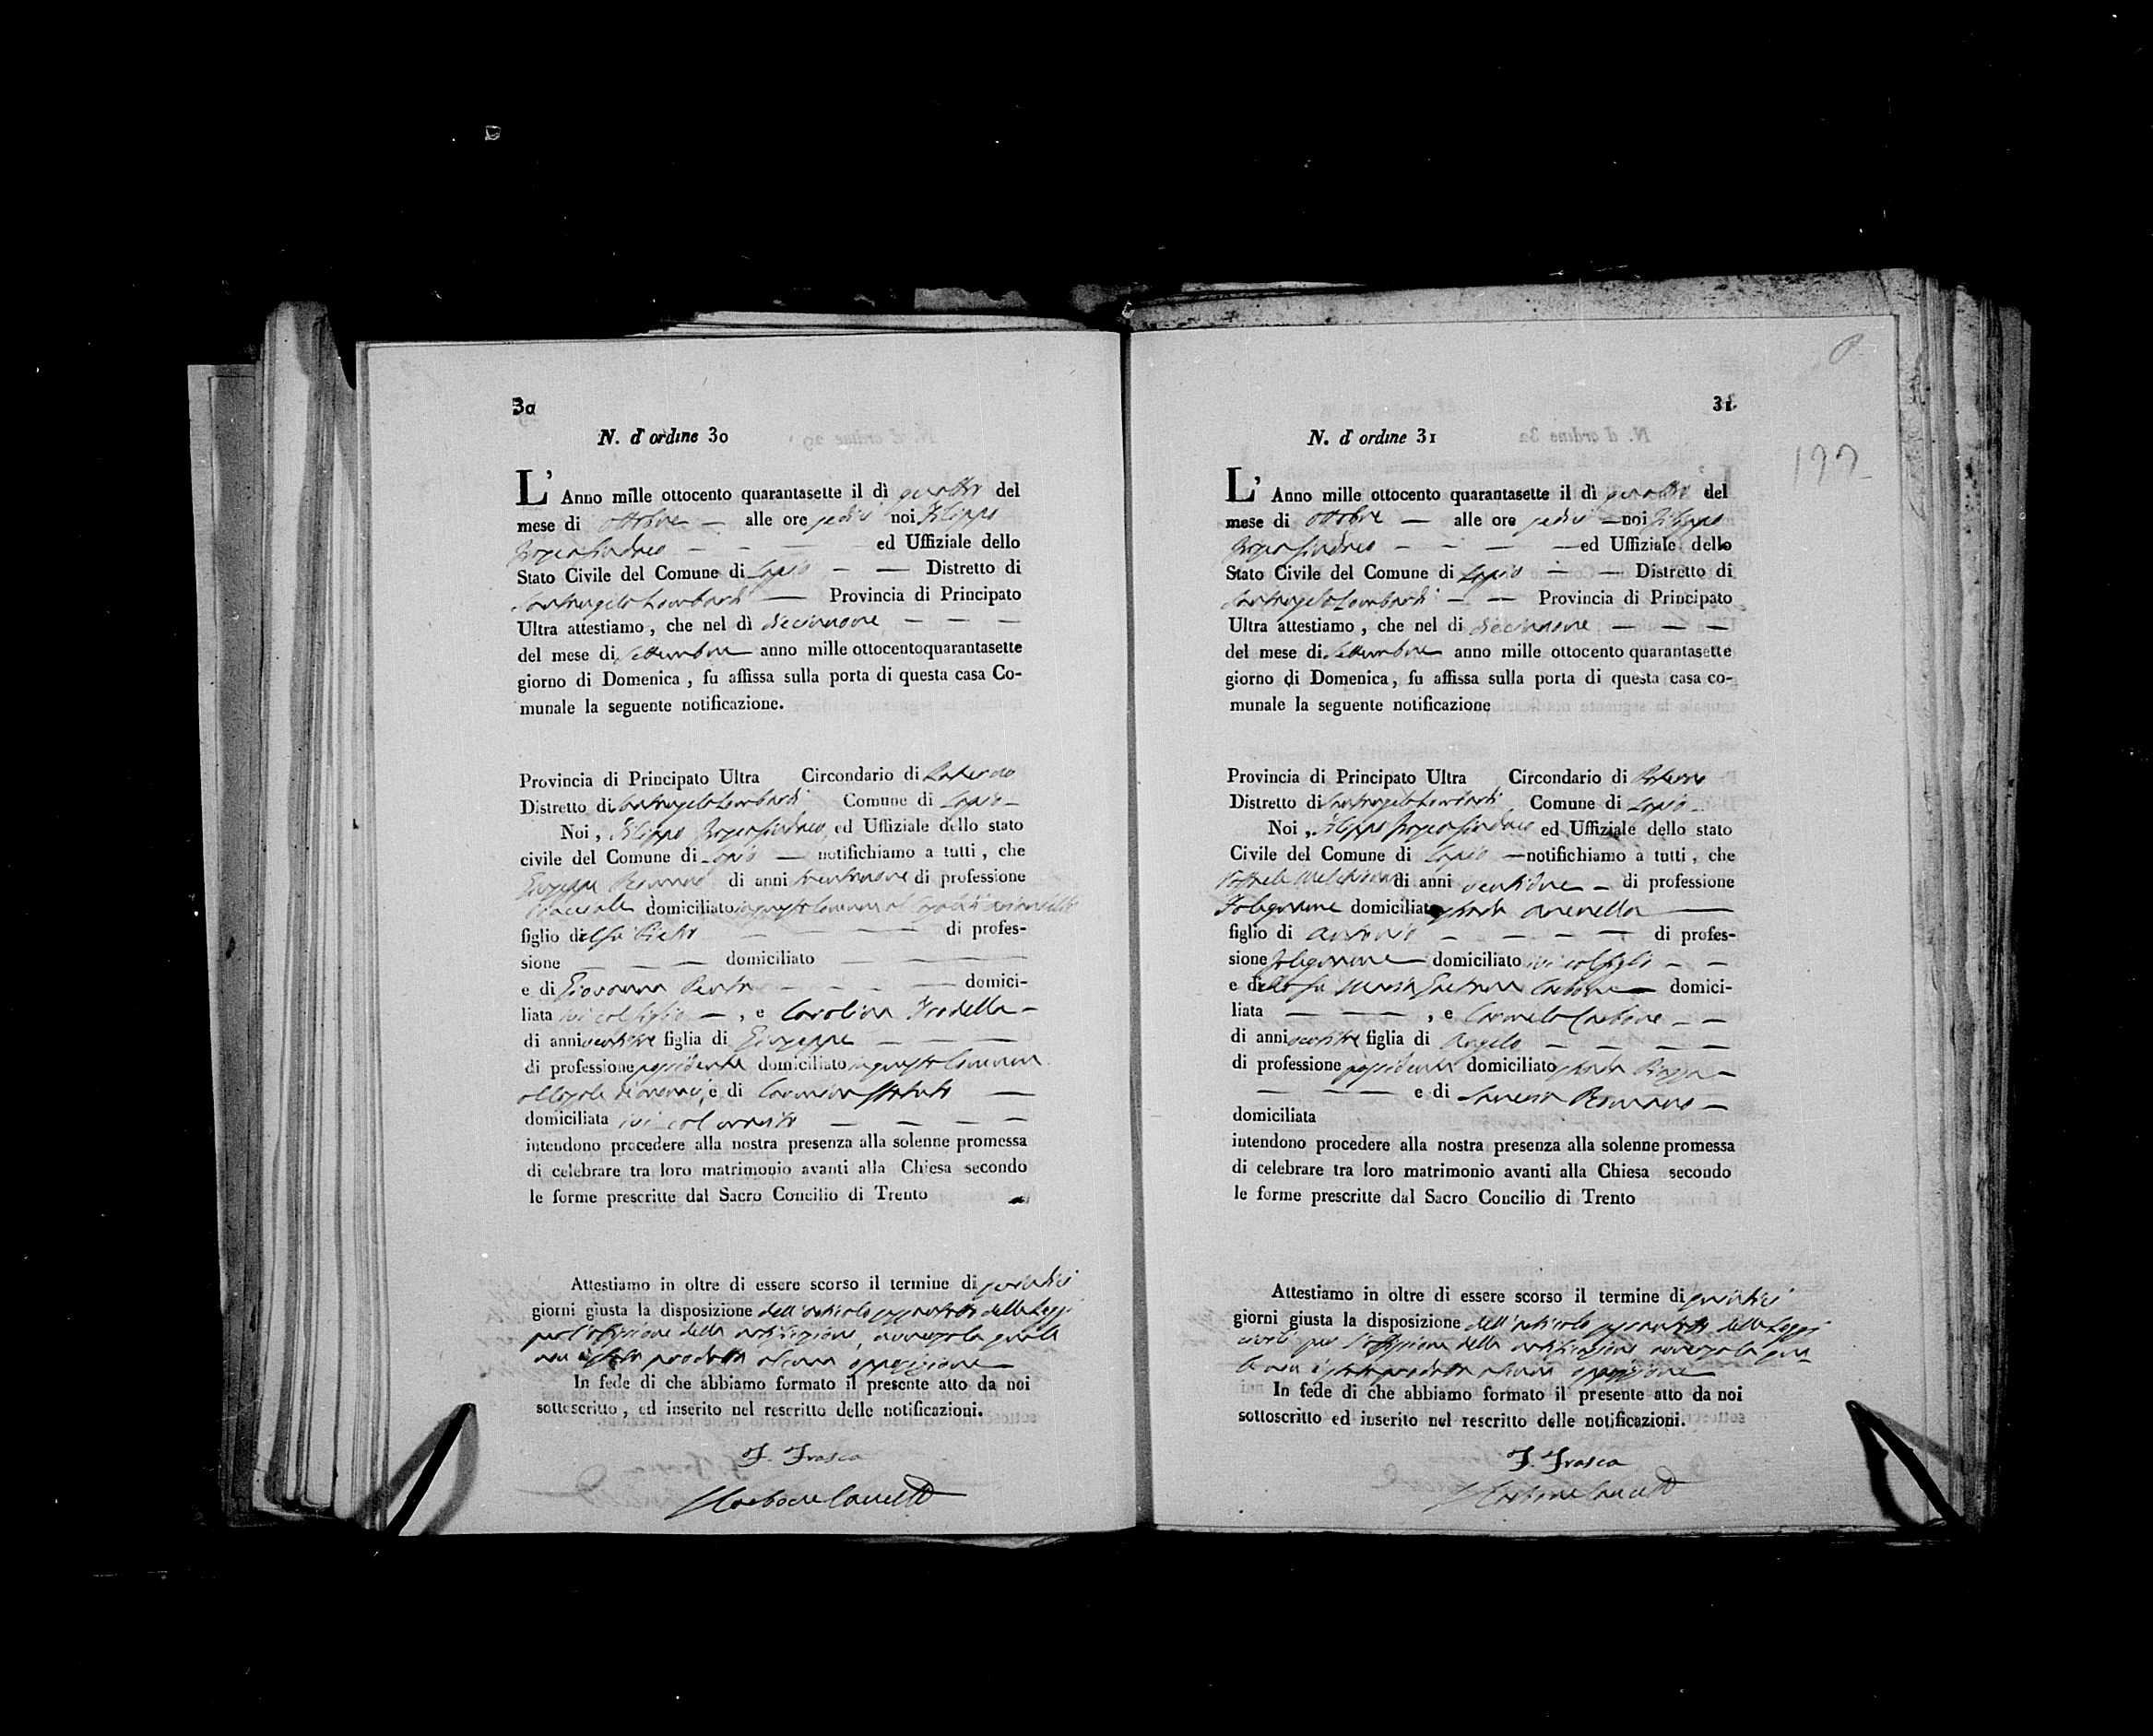 30
N. d'ordine 30
L' Anno mille ottocento quarantasette il dì quattro del
mese di ottobre — alle ore sedici noi Filippo
ed Uffiziale dello
Stato Civile del Comune di Lapio — — Distretto di
Santangelo Lombardi — Provincia di Principato
Ultra attestiamo, che nel dì diecinnove — — —
del mese di Settembre anno mille ottocentoquarantasette
giorno di Domenica, fu affissa sulla porta di questa casa Co-
munale la seguente notificazione.
Provincia di Principato Ultra Circondario di Paterno
Distretto di Santangelo Lombardi Comune di Lapio —
Noi, Filippo ed Uffiziale dello stato
civile del Comune di Lapio — notifichiamo a tutti, che
Giuseppe Romano di anni trentanove di professione
domiciliato in questo Comune
figlio del fu Pietro — — — di profes-
sione — — — domiciliato — — —
e di Giovanna — — — — domici-
liata ivi col figlio —, e Carolina Frodella —
di anni ventitre figlia di Giuseppe — — —
di professione possidente domiciliato in questo Comune
e di Carmina —
domiciliata ivi col marito — — — —
intendono procedere alla nostra presenza alla solenne promessa
di celebrare tra loro matrimonio avanti alla Chiesa secondo
le forme prescritte dal Sacro Concilio di Trento
Attestiamo in oltre di essere scorso il termine di quindici
giorni giusta la disposizione dell'articolo della Leggi
per l'affissione della notificazione, avverso la quale
non è stata prodotta alcuna opposizione —
In fede di che abbiamo formato il presente atto da noi
sottoscritto, ed inserito nel rescritto delle notificazioni.
F. Frasca
31
N. d'ordine 31
177
L' Anno mille ottocento quarantasette il dì quattro del
mese di ottobre — alle ore sedici — noi Filippo
— — — — ed Uffiziale dello
Stato Civile del Comune di Lapio — — Distretto di
Santangelo Lombardi — — Provincia di Principato
Ultra attestiamo, che nel dì diecinnove — — —
del mese di Settembre anno mille ottocento quarantasette
giorno di Domenica, fu affissa sulla porta di questa casa co-
munale la seguente notificazione
Provincia di Principato Ultra Circondario di Paterno
Distretto di Santangelo Lombardi Comune di Lapio —
Noi, Filippo ed Uffiziale dello stato
Civile del Comune di Lapio — notifichiamo a tutti, che
di anni ventidue — di professione
Falegname domiciliato strada Arenella —
figlio di Antonio — — — — di profes-
sione falegname — domiciliato ivi col figlio — —
e della fu Maria Gaetana Carbone — domici-
liata — — —, e Carmela Carbone — —
di anni ventitre figlia di Angelo — — — —
di professione possidente domiciliato strada Piazza —
— — — e di Romano —
domiciliata
intendono procedere alla nostra presenza alla solenne promessa
di celebrare tra loro matrimonio avanti alla Chiesa secondo
le forme prescritte dal Sacro Concilio di Trento
Attestiamo in oltre di essere scorso il termine di quindici
giorni giusta la disposizione dell'articolo delle Leggi
civili per l'affissione della notificazione avverso la qua-
le non è stata prodotta alcuna opposizione
In fede di che abbiamo formato il presente atto da noi
sottoscritto ed inserito nel rescritto delle notificazioni.
F. Frasca